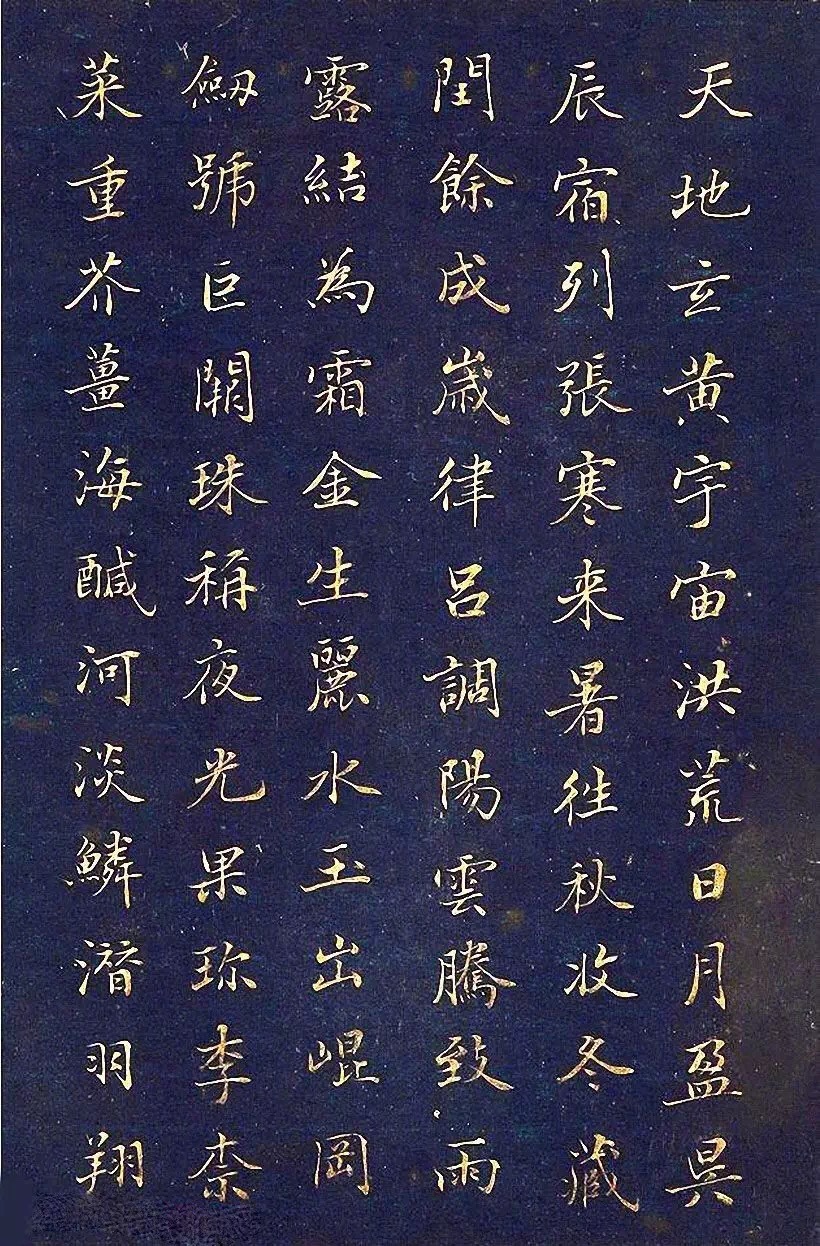 天地玄黃宇宙洪荒日月盈昃
辰宿列張寒来暑往秋收冬藏
閏餘成歲律呂調陽雲騰致雨
露結為霜金生麗水玉出崐岡
劒號巨闕珠稱夜光果珎李柰
菜重芥薑海醎河淡鱗潛羽翔